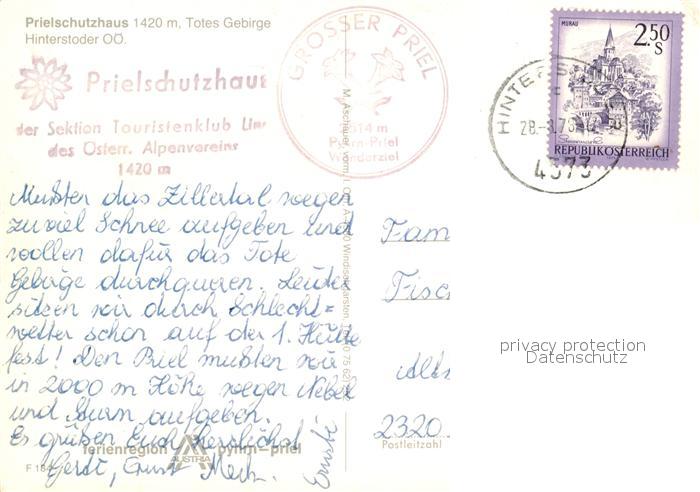 Prielschutzhaus 1420 m, Totes Gebirge
Hinterstoder OÖ.
Prielschutzhaus
der Sektion Touristenklub Linz
des Österr. Alpenvereins
1420 m
GROSSER PRIEL
2514 m
Pyhrn-Priel
Wanderziel
MURAU
2.50 S
REPUBLIK ÖSTERREICH
HINTERS
28.-8.78
4573
Mußten das Zillertal wegen
zuviel Schnee aufgeben und
wollen dafür das Tote
Gebirge durchqueren. Leider
sitzen wir durch Schlecht=
wetter schon auf der 1. Hütte
fest! Den Priel mußten wir
in 2000 m Höhe wegen Nebel
und Sturm aufgeben.
Es grüßen Euch herzlichst
Gerdi, Ernst
Ernsti
Fam
Fisc
2320
Postleitzahl
privacy protection
Datenschutz
ferienregion pyhrn-priel
AUSTRIA